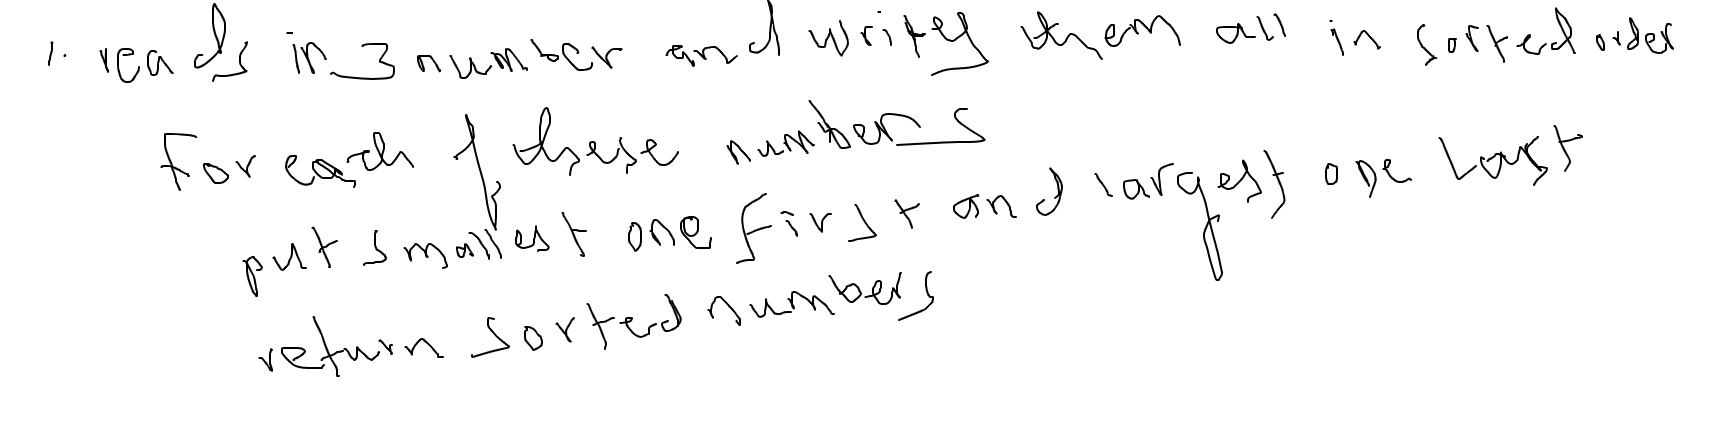 1. reads in 3 number and writes them all in sorted order
For each of these numbers
put smallest one first and largest one Last
return sorted numbers